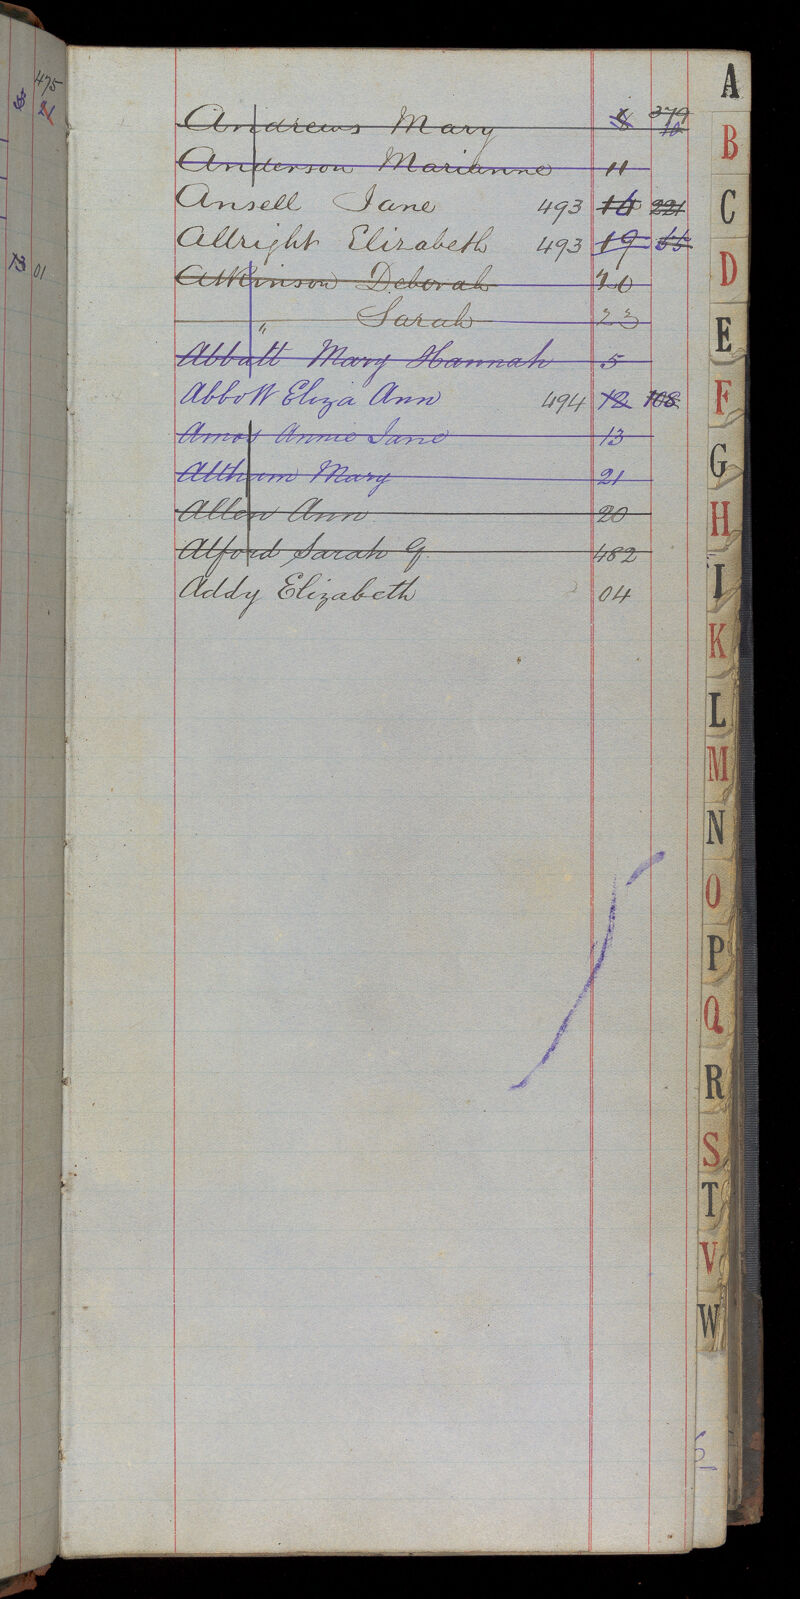 475
21
13 01
379
Andrews Mary 8 10
Anderson Marianne 11
Ansell Jane 493 16 221
Allright Elizabeth 493 19 55
Atkinson Deborah 20
" Sarah 23
Abbatt Mary Hannah 5
Abbott Eliza Ann 494 12 108
Amos Annie Jane 13
Altham Mary 21
Allen Ann 20
Alford Sarah G 482
Addy Elizabeth 04
A
B
C
D
E
F
G
H
I
K
L
M
N
O
P
Q
R
S
T
V
W